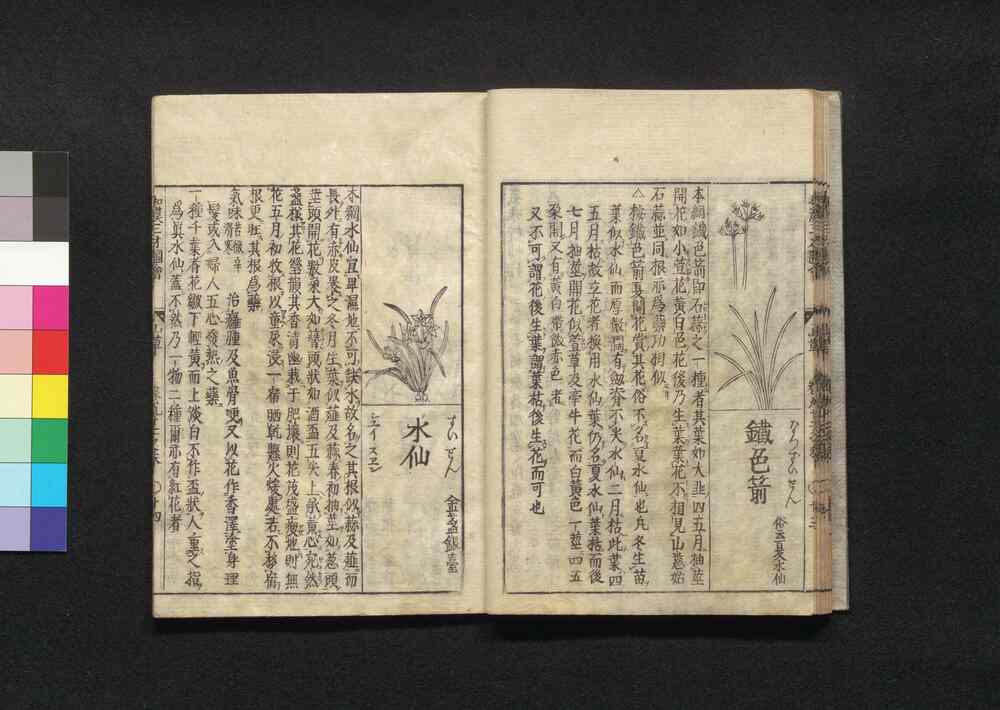 鐵色箭
なつずいせん
俗云夏水仙
本綱鐵色箭即石蒜之一種者其葉如大韭四五月抽莖
開花如小萱花黃白色花後乃生葉葉花不相見山慈姑
石蒜並同根亦爲藥功相似
△按鐵色箭夏開花賞其花俗不名夏水仙也凡冬生苗
葉似水仙而厚嚴濶有劔脊不尖水仙二月枯此葉四
五月枯故立花者檢用水仙葉仍名夏水仙葉枯而後
七月抽莖開花似萱草及牽牛花而白黃色一莖四五
朶開又有黃白帶微赤色者
又不可謂花後生葉謂葉枯後生花而可也
水仙
すいせん
シユイスエン
金盞銀臺
本綱水仙宜卑濕地不可缺水故名之其根似蒜及薤而
長外有赤皮裹之冬月生葉似薤及蒜春初抽莖如葱頭
莖頭開花數朶大如簪頭狀如酒盃五尖上承黃心宛然
盞樣其花瑩韻其香清幽栽于肥壤則花茂盛瘦地則無
花五月初收根以童尿浸一宿晒乾懸火煖處若不移宿
根更旺其根爲藥
氣味 苦微辛滑寒 治癰腫及魚骨哽又以花作香澤塗身理
髮或入婦人五心發熱之藥
一種千葉者花皺下輕黃而上淡白不作盃狀人重之指
爲眞水仙蓋不然乃一物二種爾亦有紅花者